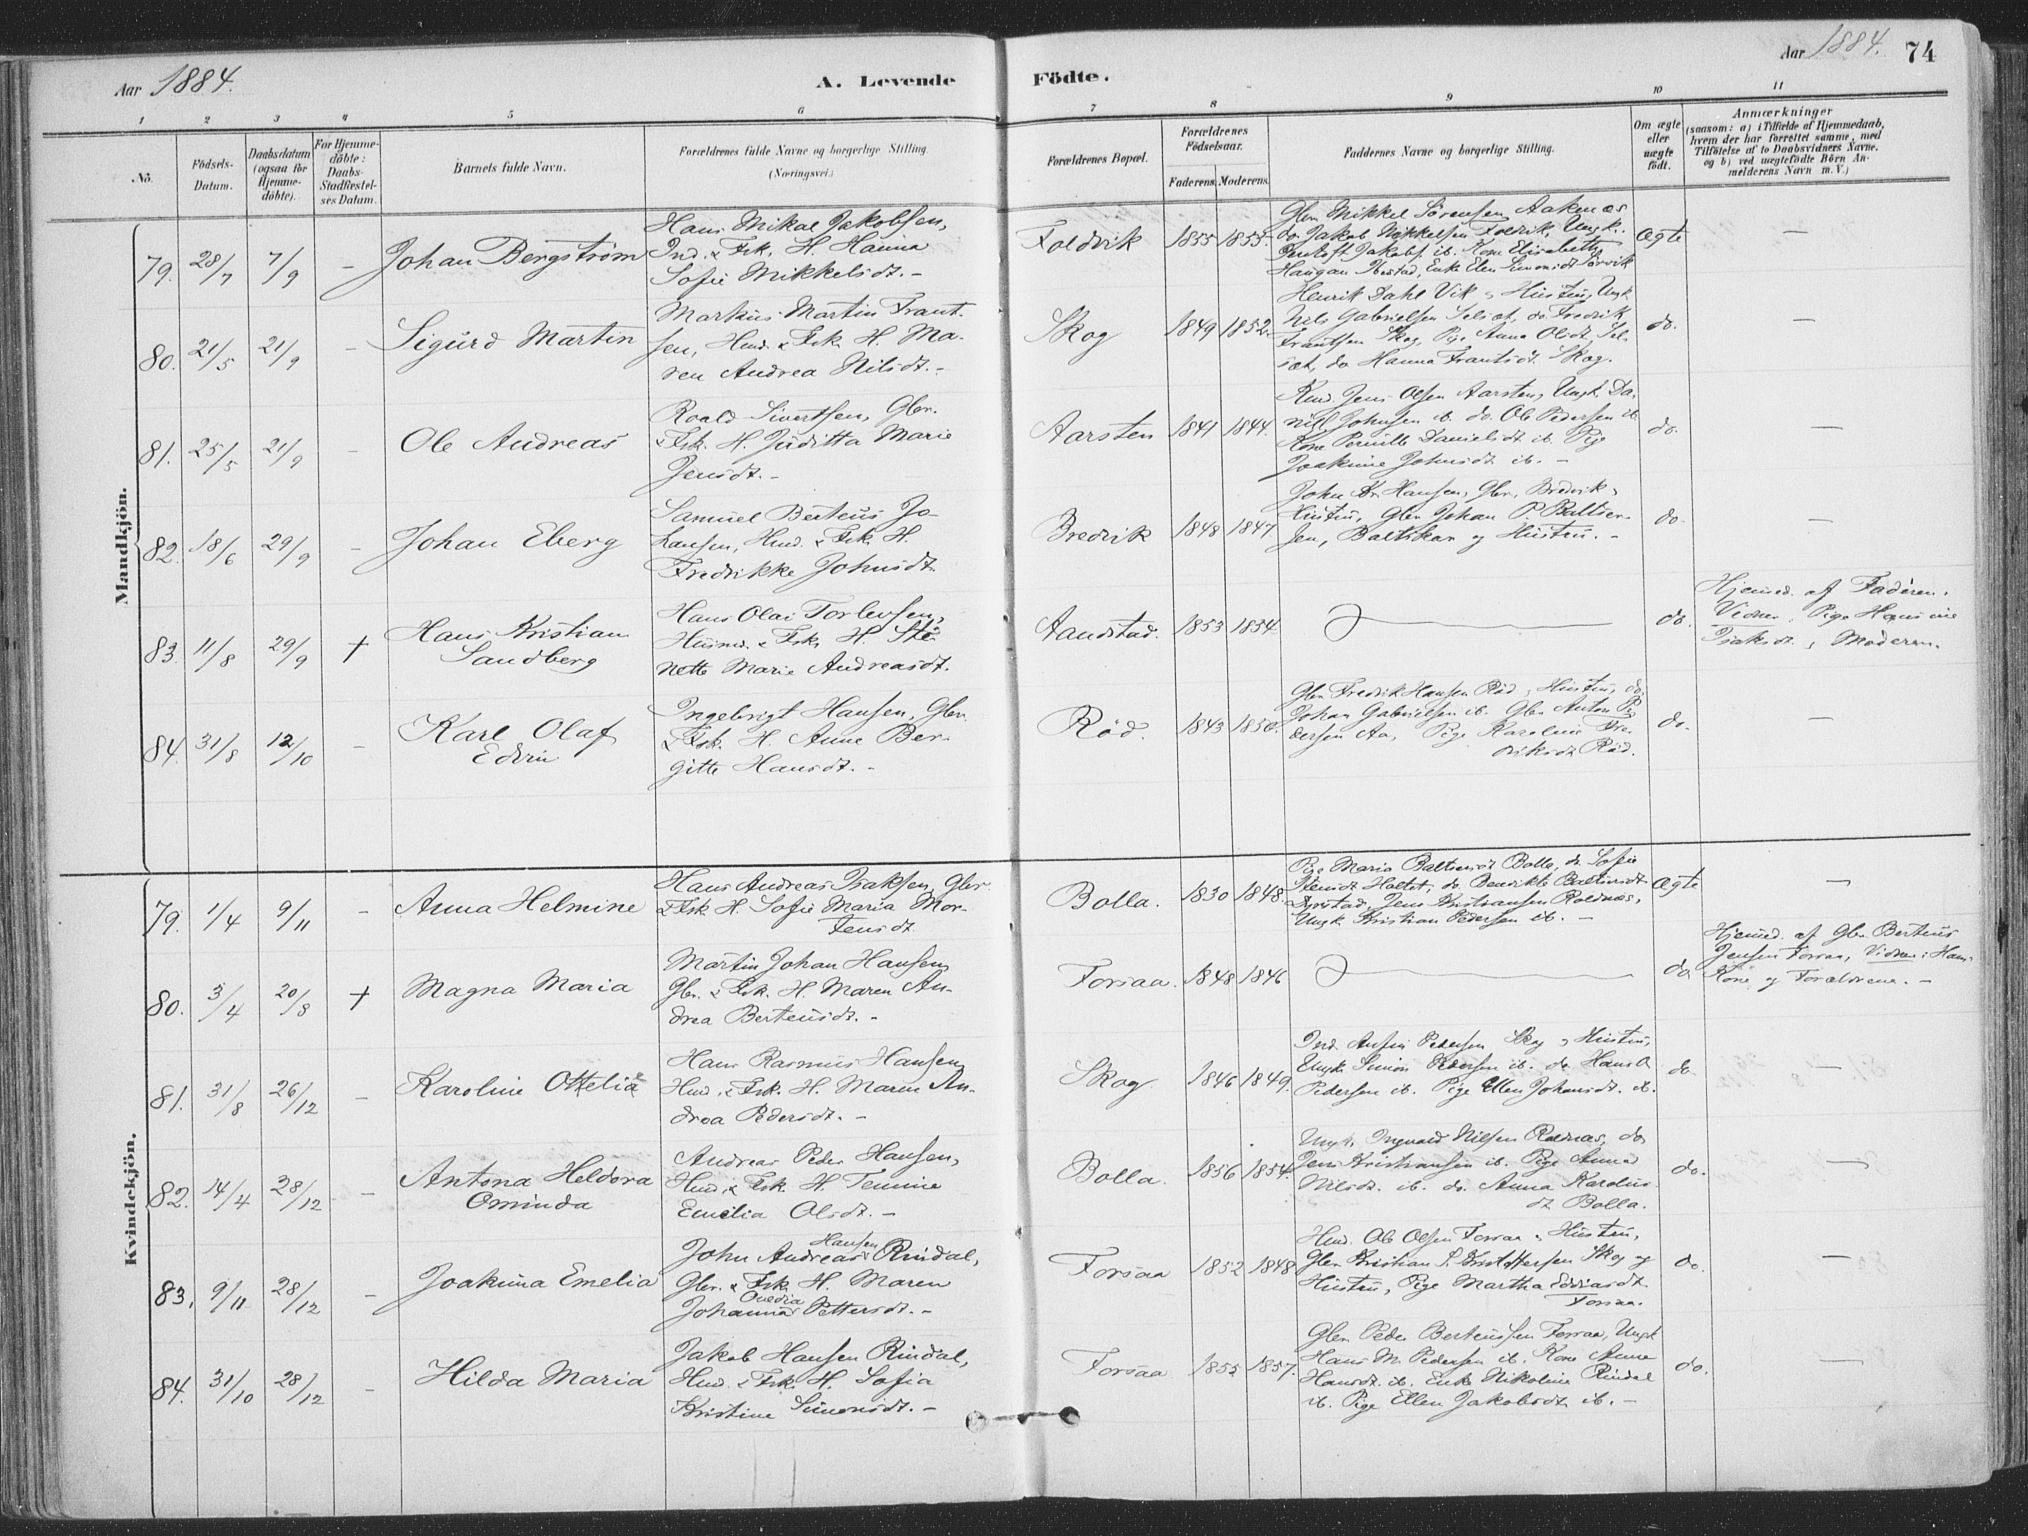 Aar 1884.
A. Levende Födte.
Aar 1884.
74
1 2 3 4 5 6 7 8 9 10 11
No.
Födsels-Datum.
Daabsdatum (ogsaa for Hjemmedöbte).
For Hjemmedöbte: Daabs-Stadfæstelses Datum.
Barnets fulde Navn.
Forældrenes fulde Navne og borgerlige Stilling.
(Næringsvei.)
Forældrenes Bopæl.
Forældrenes Födselsaar.
Faderens. Moderens.
Faddernes Navne og borgerlige Stilling.
Om ægte eller uægte födt.
Anmærkninger
(saasom: a) i Tilfælde af Hjemmedaab, hvem der har forrettet samme, med Tilföielse af to Daabsvidners Navne, og b) ved uægtefödte Börn Anmelderens Navn m. V.)
Mandkjön.
79. 28/7 7/9 – Johan Bergström
Hans Mikal Jakobsen,
Ind. & Fsk. H. Hanna
Sofie Mikkelsdt. –
Foldvik 1855 1855.
Gbr. Mikkel Sörensen Aaknes
do Jakob Mikkelsen Foldvik, Ungk.
Jakobs. ib. Kone Elisabeth
Haugan Ibestad, Enke Elen Simonsdt
Ægte –
80. 21/5 21/9 – Sigurd Martin
Markus Martin Frant-
sen, Hmd. & Fsk. H. Ma-
ren Andrea Nilsdt. –
Skog 1849 1852.
Henrik Dahl Vik & Hustru, Ungk
Nils Gabrielsen Selset, do Fredrik
Frantsen Skog, Pige Anna Olsdt. Sel-
set, do Hanna Frantsdt. Skog.
do. –
81. 25/5 21/9 – Ole Andreas
Roald Sivertsen, Gbr.
& Fsk. H. Juditta Marie
Jensdt. –
Aarsten 1841 1844.
Kmd. Jens Olsen Aarsten, Ungk. Da-
niel Johnsen ib. do. Ole Pedersen ib
Kone Pernille Danielsdt ib. Pige
Joakime Johnsdt. ib. –
do. –
82. 18/6 29/9 – Johan Eberg
Samuel Berteus Jo-
hansen, Hmd. & Fsk. H.
Fredrikke Johnsdt.
Bredvik 1848 1847
John Kr. Hansen, Gbr. Bredvik &
Hustru, Gbr Johan P. Baltser-
sen, Baltskar og Hustru. –
do. –
83. 11/8 29/9 + Hans Kristian
Sandberg
Hans Olai Torlevsen,
Husmd. & Fsk. H. Ste-
nette Marie Andreasdt.
Aandstad. 1853 1854
do.
Hjemmed. af Faderen.
Vidner, Pige Hansine
Isaksdt. & Moderen.
84. 31/8 12/10 – Karl Olaf
Edvin
Ingebrigt Hansen, Gbr.
& Fsk. H. Anne Ber-
gitte Hansdt. –
Röd. 1843 1850.
Gbr Fredrik Hansen Röd & Hustru, do.
Johan Gabrielsen ib. Gbr Anton Pe-
dersen Aa, Pige Karoline Fre-
driksdt Röd.
do. –
Kvindekjön.
79. 1/4 9/11 – Anna Helmine
Hans Andreas Isaksen, Gbr.
& Fsk H. Sofie Maria Mor-
tensdt
Bolla. 1830 1848.
Pige Maria Baltsersdt Bolla, do. Sofie
Stensdt Holtet, do. Bendikte Baltsersdt
Dyrstad, Jens Kristiansen Roldnes,
Ungk. Kristian Pedersen ib. –
Ægte –
80. 3/4 20/8 + Magna Maria
Martin Johan Hansen
Gbr. & Fsk. H. Maren An-
drea Berteusdt. –
Forsaa. 1848 1846
do
Hjemmed. af Gbr Berteus
Jensen Forsaa, Vidner: Hans
Kone og Forældrene. –
81. 31/8 26/12 – Karoline Ottelia
Hans Rasmus Hansen
Hmd. & Fsk. H. Maren An-
drea Pedersdt. –
Skog 1846 1849.
Ind. Pedersen Skog & Hustru,
Ungk Simon Pedersen ib. do Hans A
Pedersen ib. Pige Ellen Johansdt. ib.
do. –
82. 14/4 28/12 – Antona Heldora
Ominda
Andreas Peder Hansen,
Hmd. & Fsk. H. Temine
Emelia Olsdt. –
Bolla. 1856 1854.
Ungk. Ingvald Nilsen Roldnes, do
Jens Kristiansen ib. Pige Anna
Nilsdt. ib. do. Anna Karolius-
dt Bolla.
do. –
83. 9/11 28/12 – Joakima Emelia
John Andreas Hansen Rindal,
Gbr. & Fsk. H. Maren
Johanna Ovedia Pettersdt. –
Forsaa 1852 1848
Hmd. Ole Olsen Forsaa & Hustru,
Gbr Kristian S. Kristoffersen Skog og
Hustru, Pige Martha Edvardsdt.
Forsaa.
do. –
84. 31/10 28/12 – Hilda Maria
Jakob Hansen Rindal,
Hmd. & Fsk. H. Sofia
Kristine Simonsdt. –
Forsaa 1855 1857.
Gbr Peder Berteussen Forsaa, Ungk
Hans M. Pedersen ib. Kone Anne
Hansdt. ib. Enke Nikoline Rindal
ib. Pige Ellen Jakobsdt. ib. –
do. –